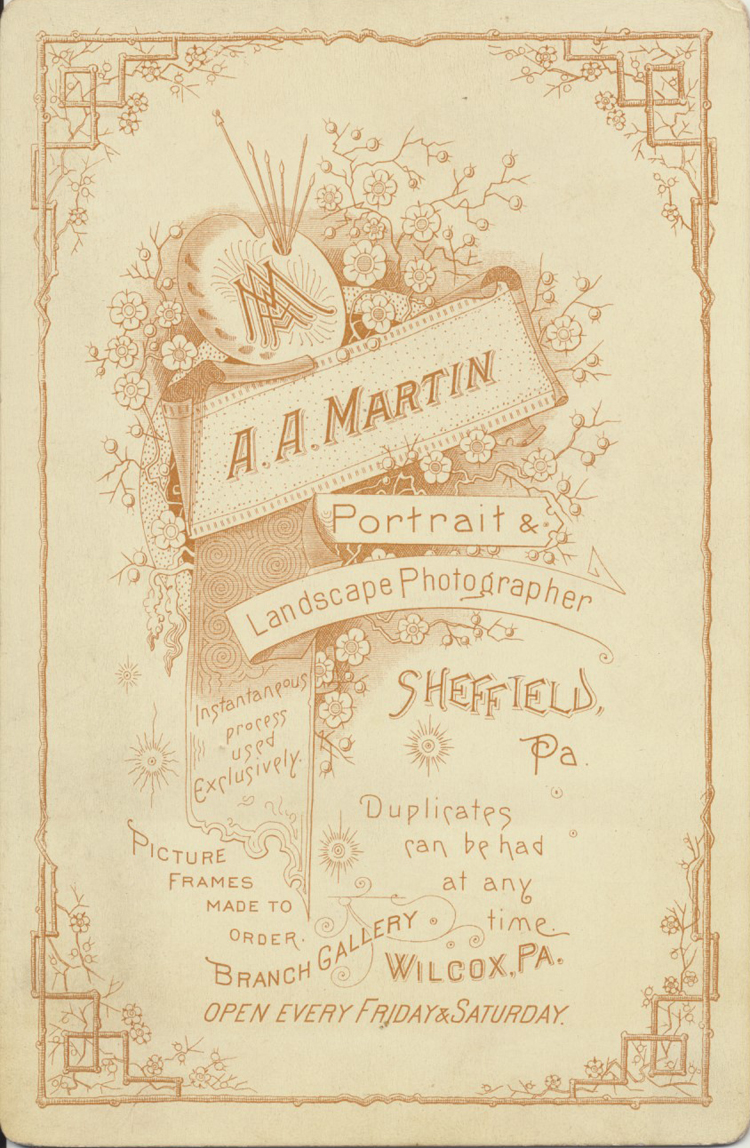 AAM
A. A. MARTIN
Portrait &
Landscape Photographer
SHEFFIELD,
Pa.
Instantaneous
process
used
Exclusively.
Duplicates
can be had
at any
time.
PICTURE
FRAMES
MADE TO
ORDER.
BRANCH GALLERY
WILCOX, PA.
OPEN EVERY FRIDAY & SATURDAY.